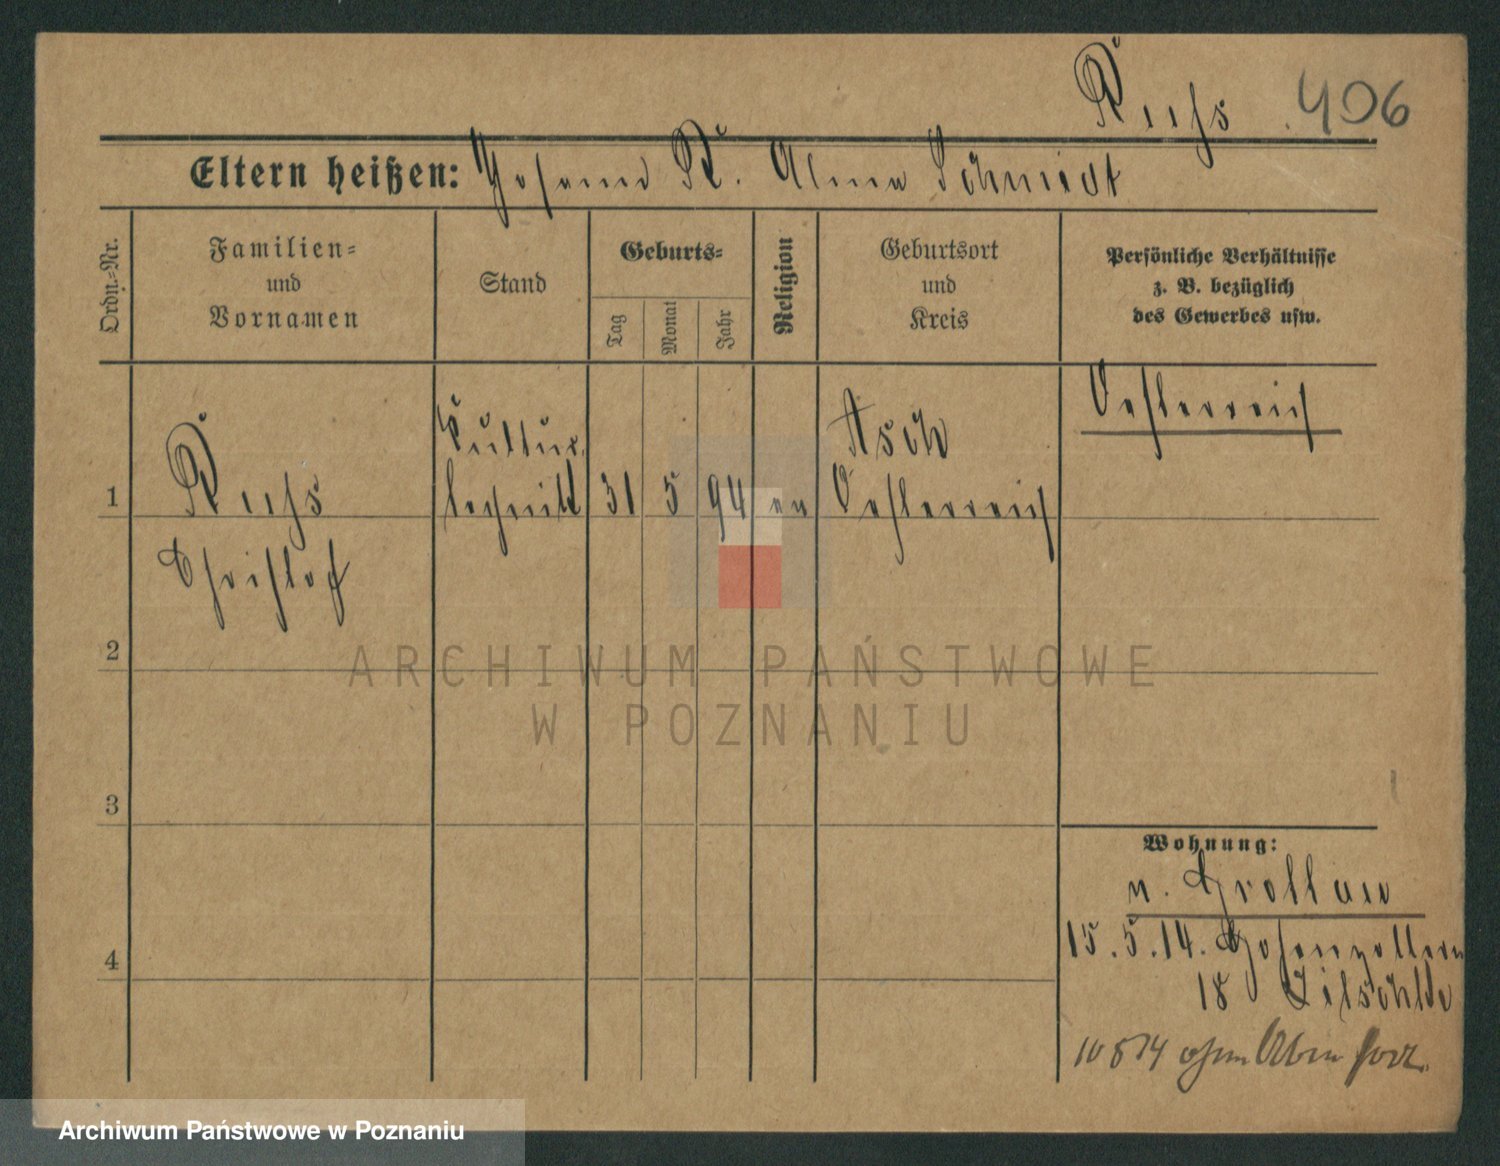 Ruhs 406
Eltern heißen: Johann R. Alma Schmidt
Ordn.-Nr.
Familien-
und
Vornamen
Stand
Geburts-
Tag
Monat
Jahr
Religion
Geburtsort
und
Kreis
Persönliche Verhältnisse
z. B. bezüglich
des Gewerbes usw.
Oesterreich
Kultur
Asch
1 Ruhs techniker 31 5 94 ev Oesterreich
Christof
2
3
4
Wohnung:
n.
15.5.14. Hohenzollern
18
10 8 14 ohne
ARCHIWUM PAŃSTWOWE
W POZNANIU
Archiwum Państwowe w Poznaniu